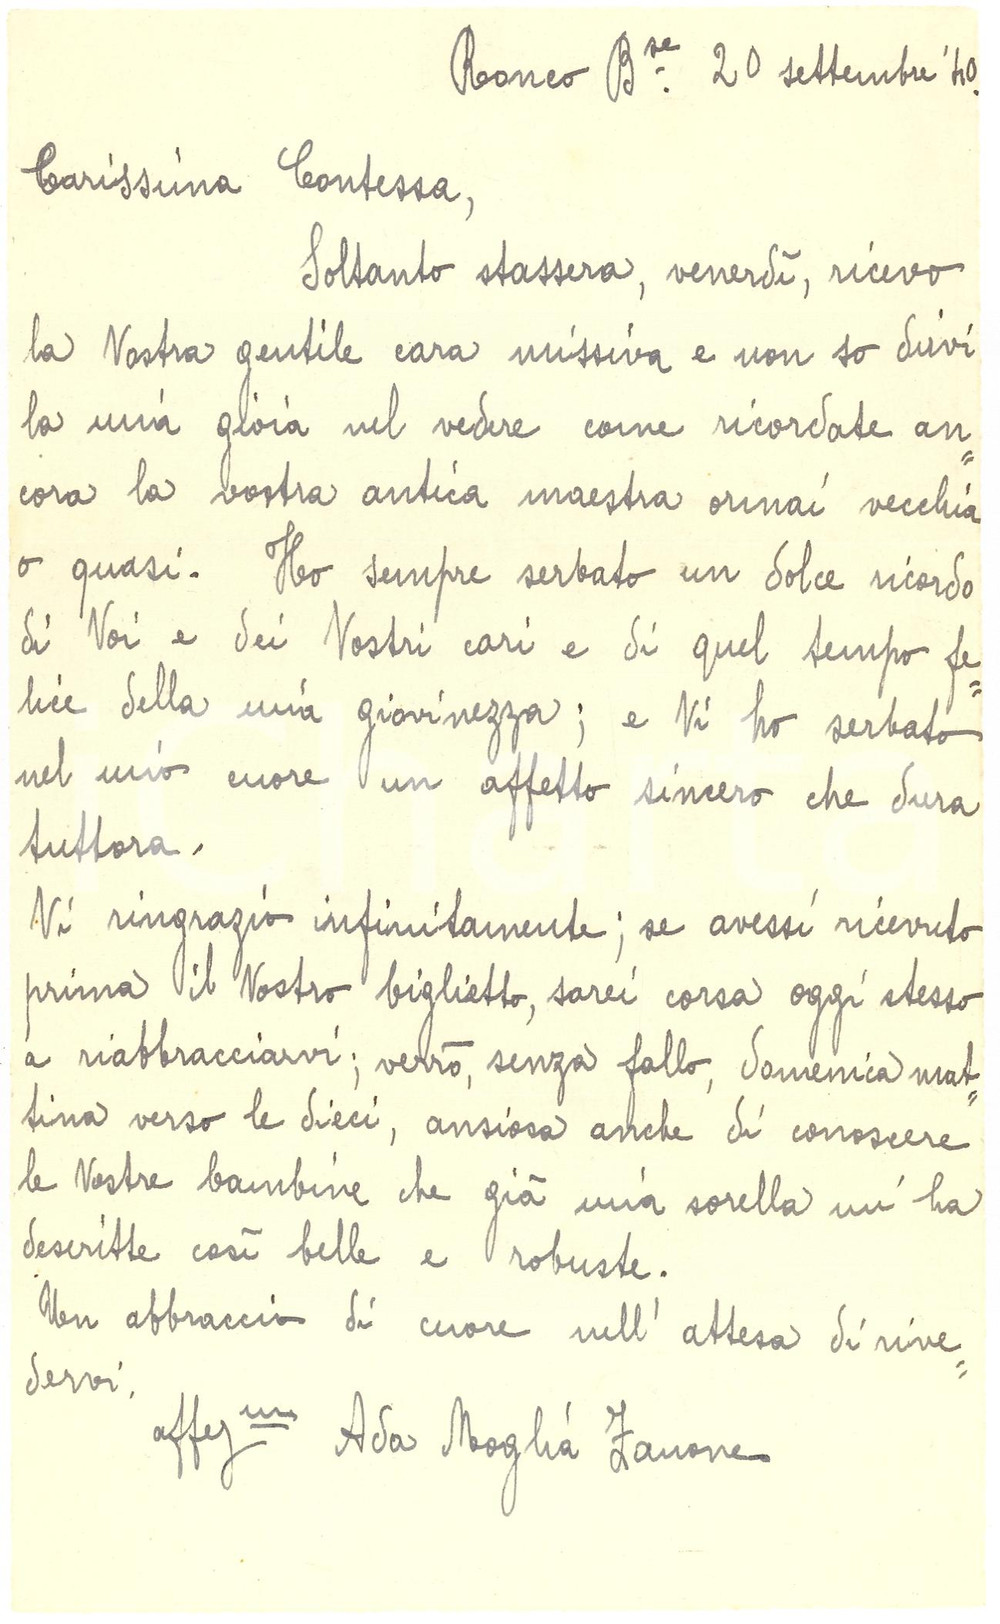 Ronco B.se 20 settembre '40.
Carissima Contessa,
Soltanto stassera, venerdì, ricevo
la Vostra gentile cara missiva e non so dirvi
la mia gioia nel vedere come ricordate an=
cora la vostra antica maestra ormai vecchia
o quasi. Ho sempre serbato un dolce ricordo
di Voi e dei Vostri cari e di quel tempo fe=
lice della mia giovinezza; e Vi ho serbato
nel mio cuore un affetto sincero che dura
tuttora.
Vi ringrazio infinitamente; se avessi ricevuto
prima il Vostro biglietto, sarei corsa oggi stesso
a riabbracciarvi; verrò, senza fallo, domenica mat=
tina verso le dieci, ansiosa anche di conoscere
le Vostre bambine che già mia sorella m'ha
descritte così belle e robuste.
Un abbraccio di cuore nell'attesa di rive=
dervi.
affez ma Ada Moglia Zanone